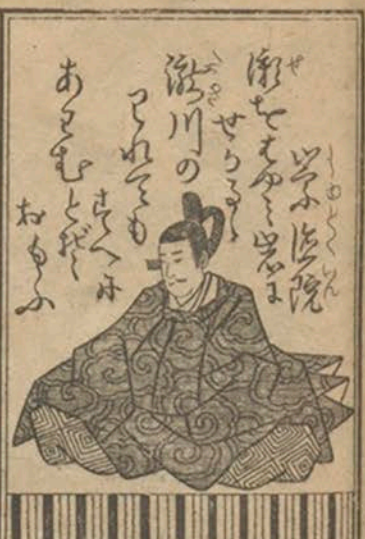 崇徳院
しゆとくいん
瀬をはやみ岩に
せ
せかるゝ
瀧川の
たき
われても
すへに
あはむとぞ
おもふ